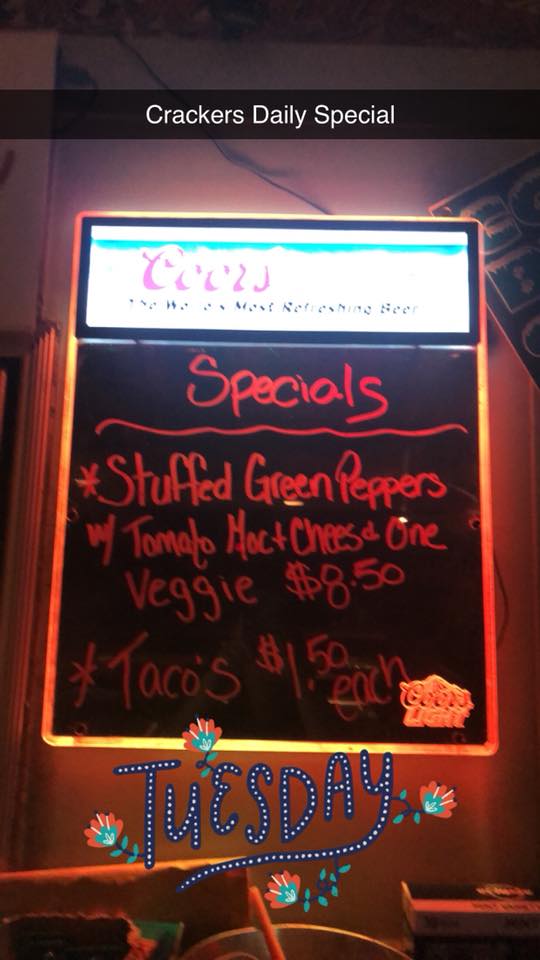 Crackers Daily Special
Coors
The World's Most Refreshing Beer
Specials
*Stuffed Green Peppers
w/ Tomato Mac + Chees & One
Veggie $8.50
*Taco's $1.50 each
Coors
LIGHT
TUESDAY